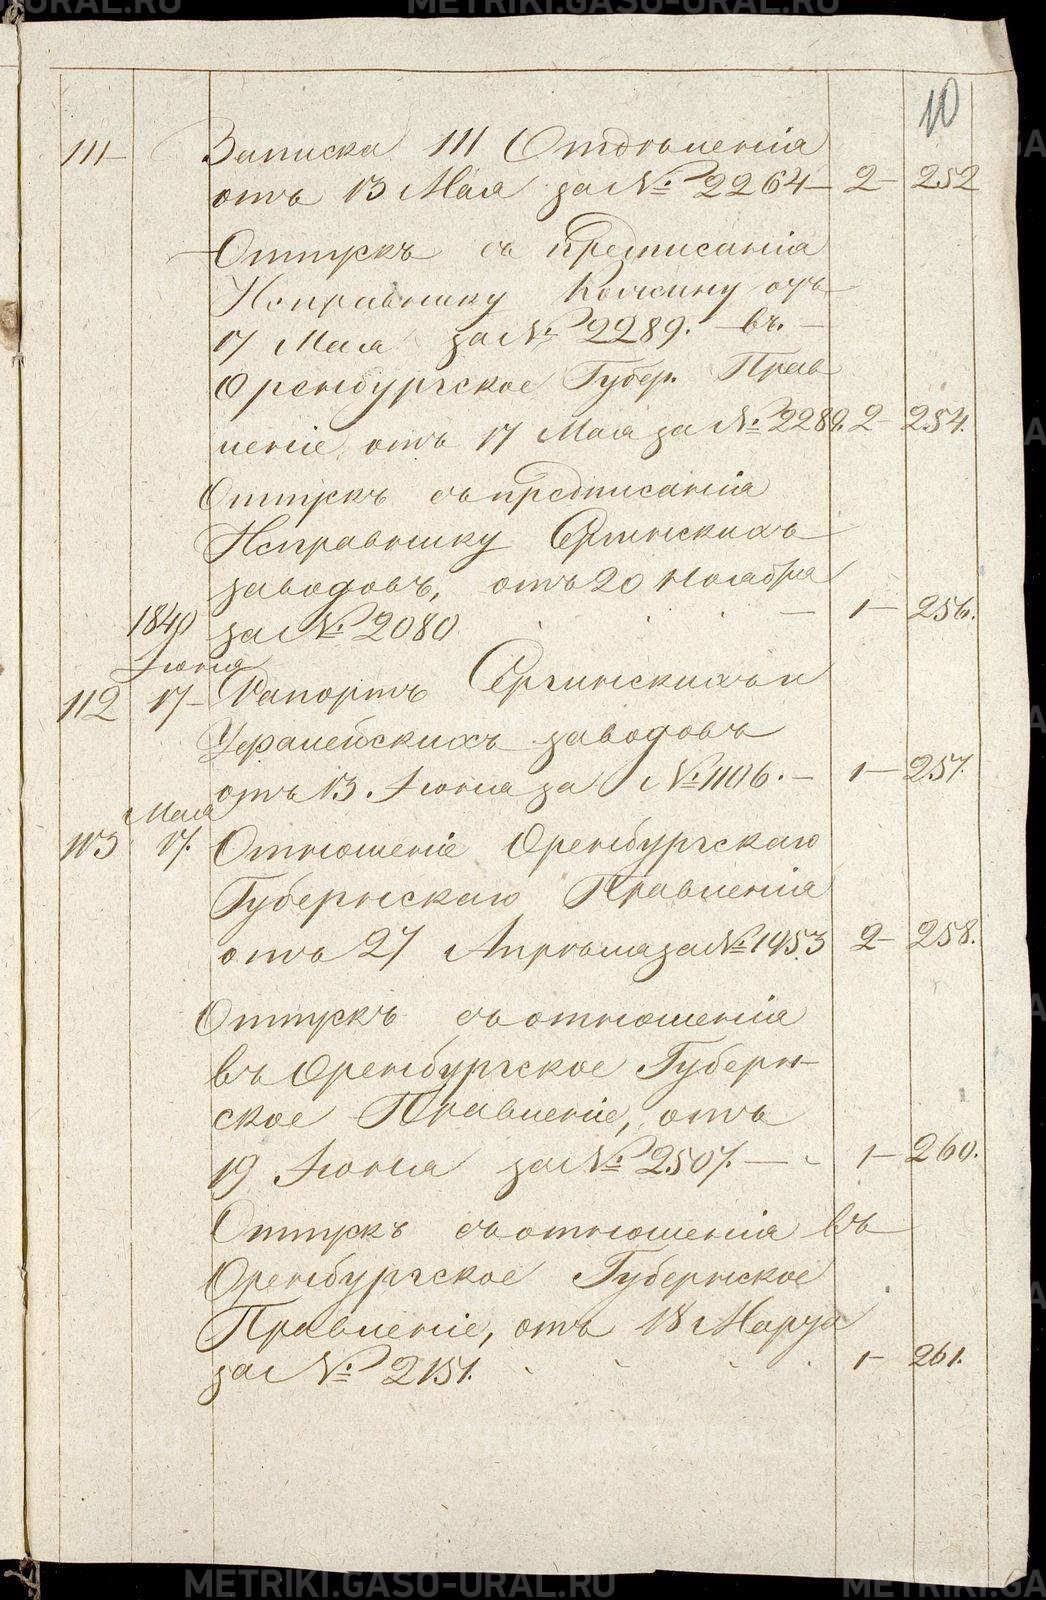 METRIKI.GASO-URAL.RU
10
111 Записка III Отдѣленія
отъ 13 Мая за № 2264 — 2 — 252
Отпускъ съ предписанія
Исправнику отъ
17 Мая за № 2289. — въ. —
Оренбургское Губер. Прав
леніе, отъ 17 Мая за № 2289. 2 — 254.
Отпускъ съ предписанія
Исправнику Сергинскихъ
заводовъ, отъ 20 Ноября
за № 2080 — 1 — 256.
1840
Іюня
112 17 — Рапортъ Сергинскихъ и
Уфалейскихъ заводовъ
отъ 13 Іюня за № 1106. — 1 — 257.
Мая
113 17. Отношеніе Оренбургскаго
Губернскаго Правленія
отъ 27 Апрѣля за № 1953 2 — 258.
Отпускъ съ отношенія
въ Оренбургское Губерн-
ское Правленіе, отъ
19 Іюня за № 2507. — 1 — 260.
Отпускъ съ отношенія въ
Оренбургское Губернское
Правленіе, отъ 18 Марта
за № 2151. 1 — 261.
METRIKI.GASO-URAL.RU